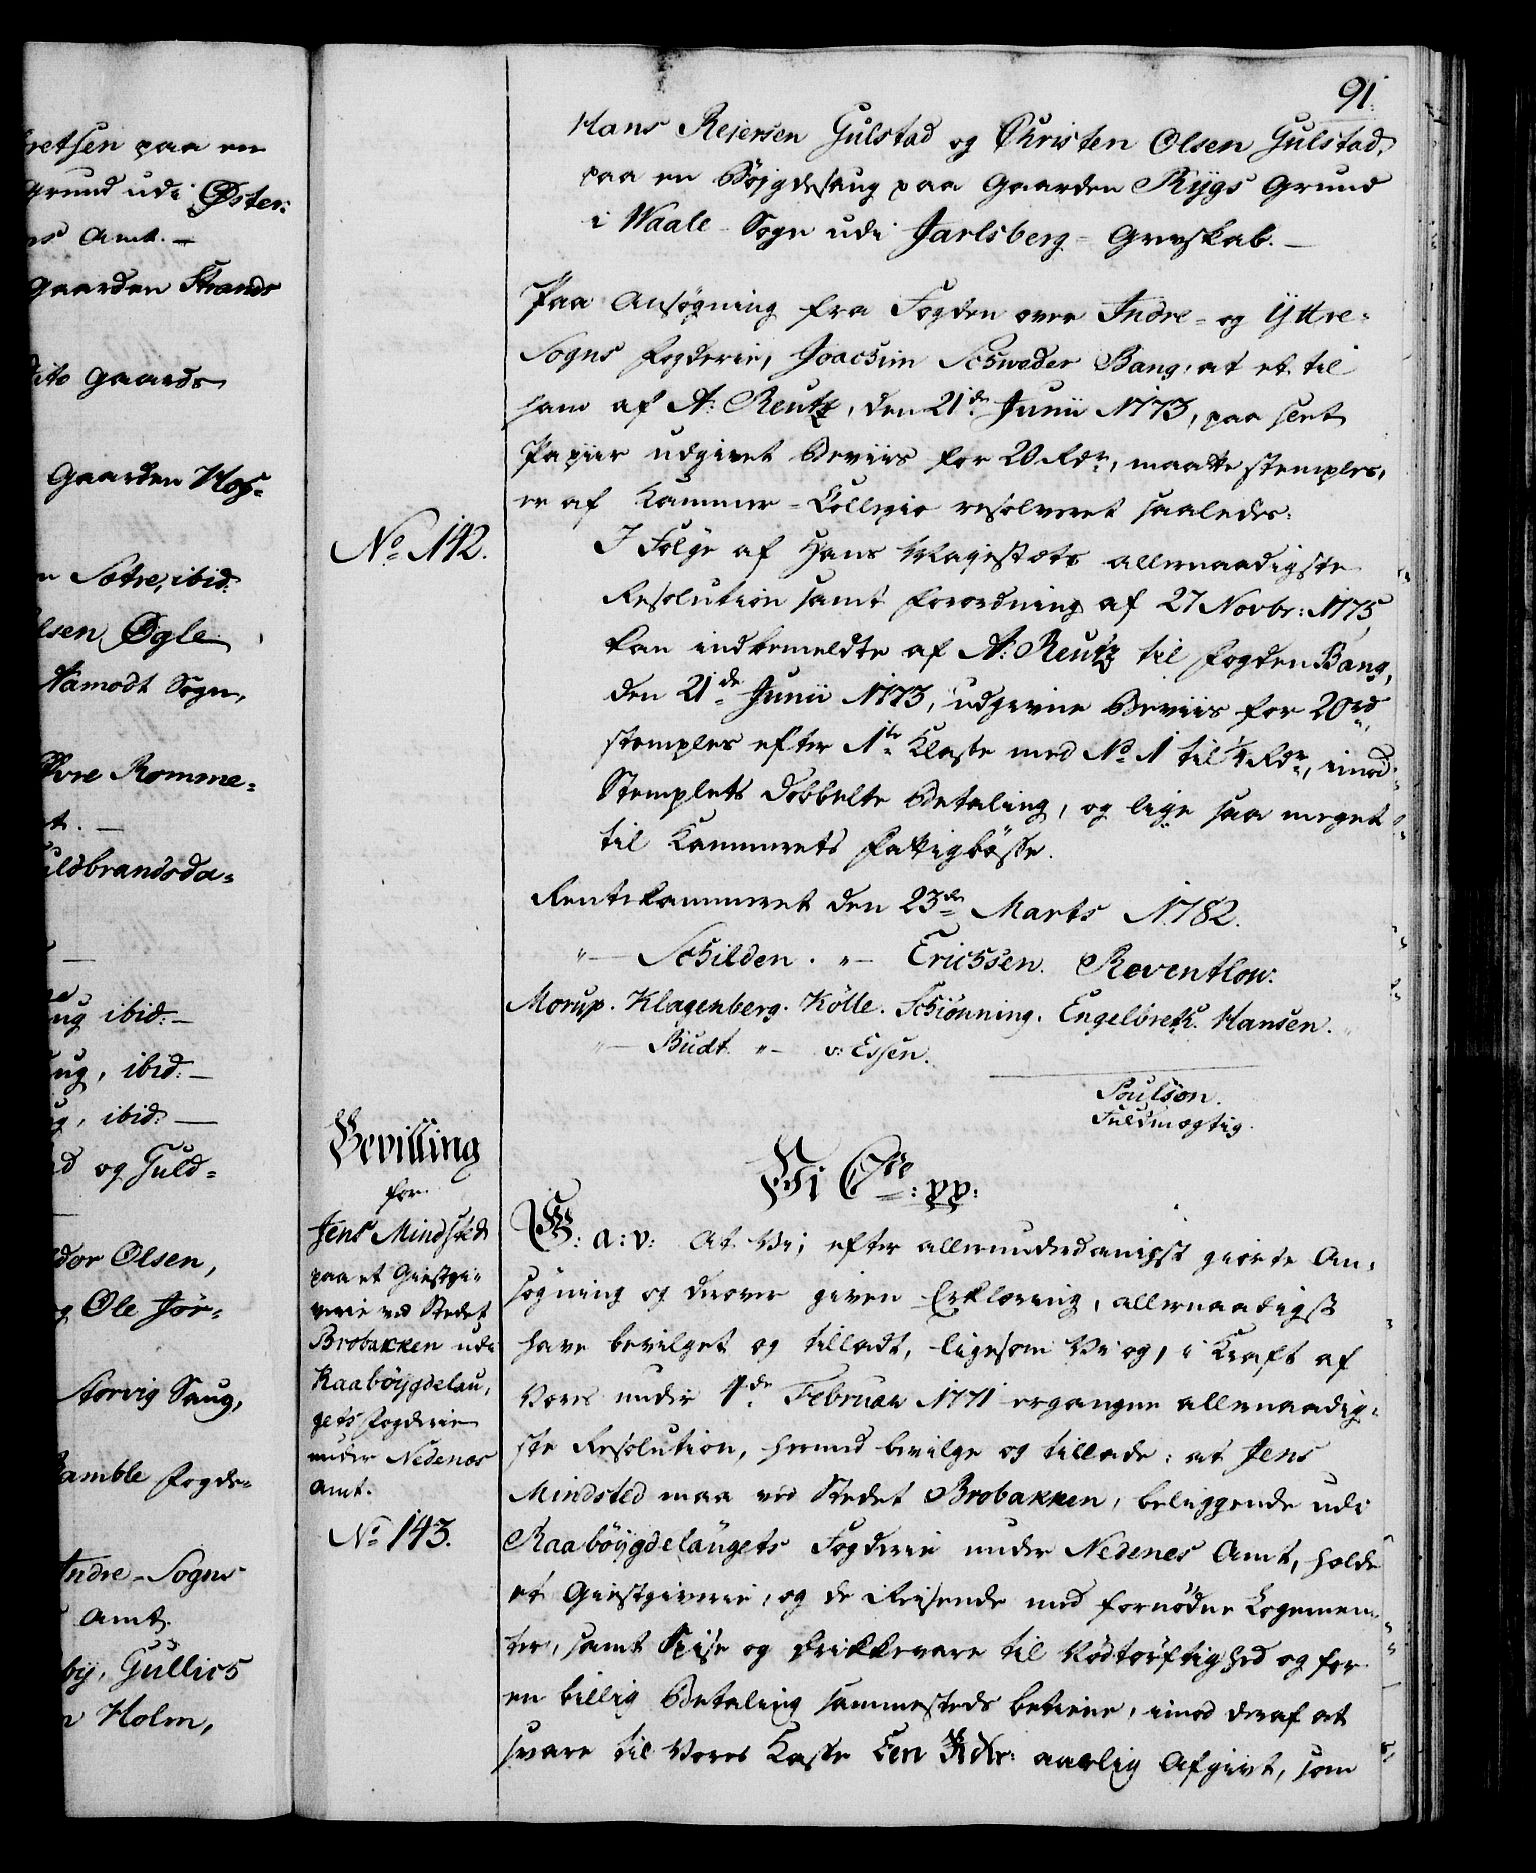 retsen paa en
Grund udi Øster:
ns Amt. —
Gaarden Strands
dito Gaards
Gaarden Hof-
n Sætre, ibid:
lsen Øgle
Aamodt Sogn,
Øvre Romme-
t. —
uldbrandsda-
ug ibid: —
ug, ibid: —
g, ibid: —
d og Guld-
dor Olsen,
g Ole Jör-
Storvig Saug,
Bamble Fogde-
Indre-Sogns
Amt.
by, Gullich
n Holm,
91.
Hans Rejersen Gulstad og Christen Olsen Gulstad,
paa en Böygdesaug paa Gaarden Rygs Grund
i Waale Sogn udi Jarlsberg Grevskab. —
Paa Ansøgning fra Fogden over Indre- og Yttre-
Sogns Fogderie, Joachim Schweder Bang, at et til
ham af A: Reutz, den 21de Junii 1773, paa slet
Papiir udgivet Beviis for 20 Rdr, maatte stemples,
er af Kammer-Collegio resolveret saaledes:
No 142.
I Følge af Hans Majestæts allernaadigste
Resolution samt Forordning af 27 Novbr: 1775,
kan indbemeldte af A: Reutz til Fogden Bang,
den 21de Junii 1773, udgivne Beviis for 20 rd
stemples efter 1te Klasse med No 1 til 1/4 Rdr, imod
Stemplets dobbelte Betaling, og lige saa meget
til Kammerets Fattigbösse.
Rentekammeret den 23de Marts 1782.
"— Schilden. "— Erichsen. Reventlow.
Morup. Klagenberg. Kölle. Schiönning. Engelbreth. Hansen.
"— Budt. "— v: Essen.
Poulson.
Fuldmægtig.
Bevilling
for
Jens Mindsted
paa et Giestgi-
verie ved Stedet
Brobakken udi
Raabøygdelau-
gets Fogderie
under Nedenæs
Amt.
No 143.
Vi C7de: pp:
G: a: v: At Vi, efter allerunderdanigst giorte An-
søgning og derover given Erklæring, allernaadigst
have bevilget og tilladt, ligesom Vi og, i Kraft af
Vores under 4de Februar 1771 ergangne allernaadig-
ste Resolution, hermed bevilge og tillade: at Jens
Mindsted maa ved Stedet Brobakken, beliggende udi
Raaböygdelaugets Fogderie under Nedenes Amt, holde
et Giestgiverie, og de Reisende med fornødne Logemen-
ter, samt Spise og Drikkevare til Nødtørftighed og for
en billig Betaling sammesteds betiene, imod deraf at
svare til Vores Kasse Een Rdlr: aarlig Afgivt, som